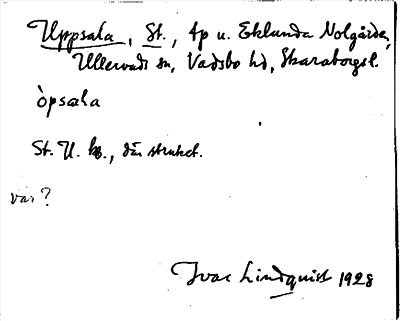 Uppsala, St., tp u. Eklunda Nolgården,
Ullervads sn, Vadsbo hd, Skaraborgs l.
òpsala
St. U. kb., där struket.
var?
Ivar Lindquist 1928